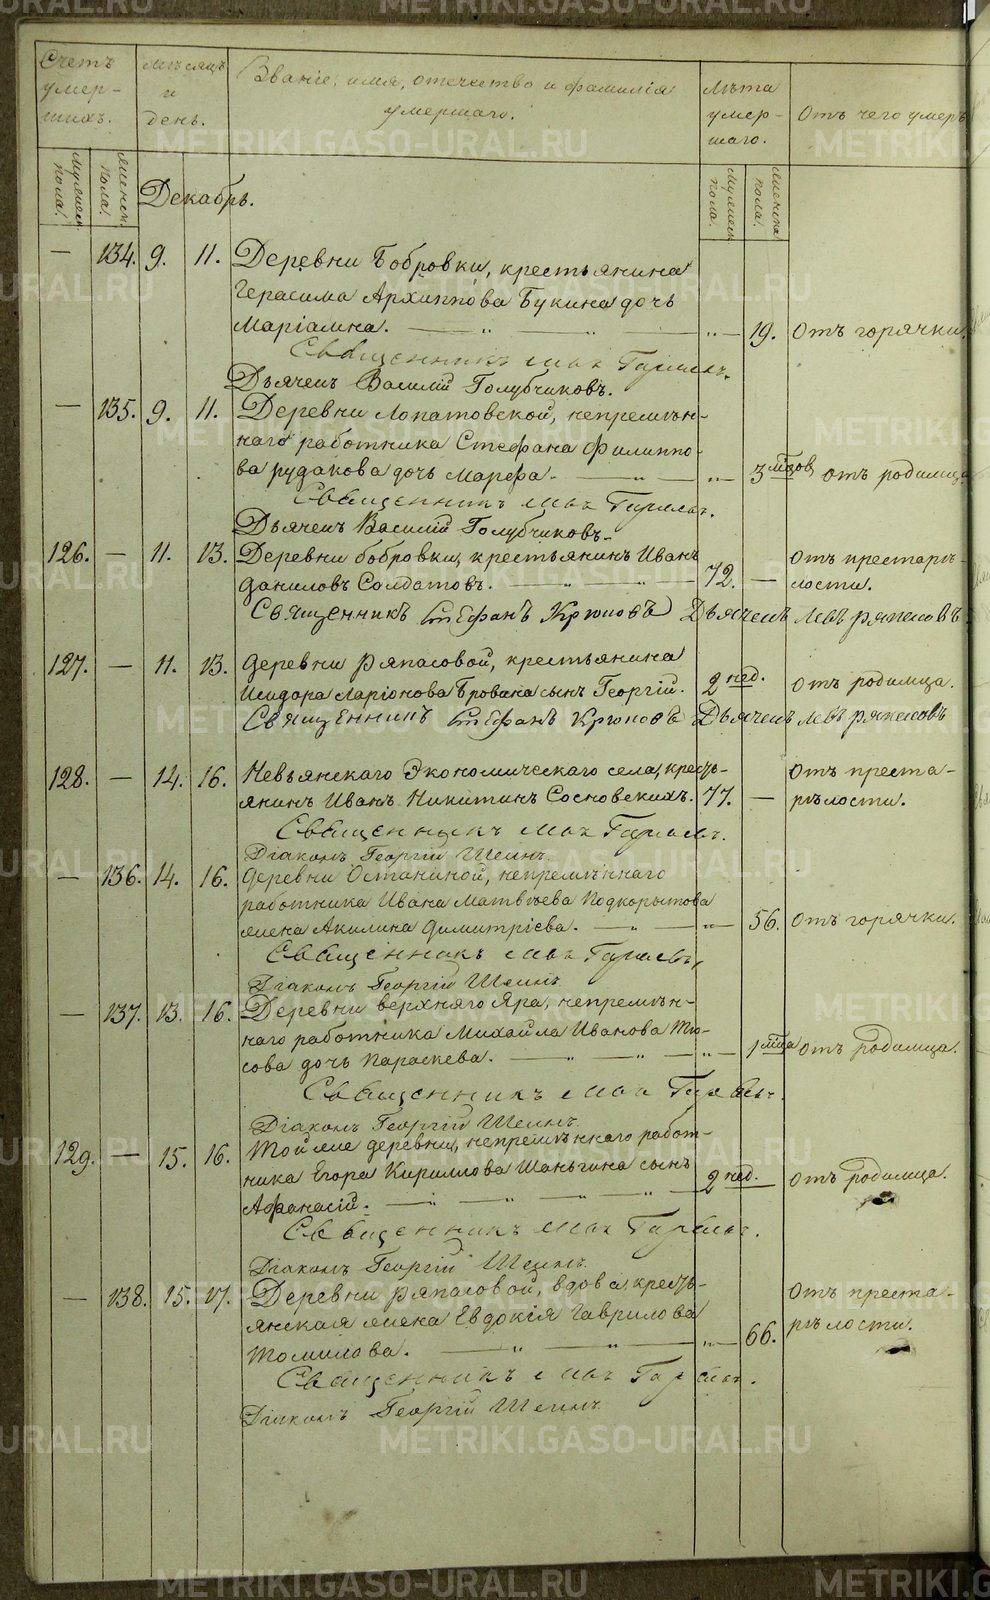 Счетъ умер- шихъ.
Мѣсяцъ и день.
Званіе, имя, отечество и фамилія
умершаго.
Лѣта умер- шаго.
Отъ чего умеръ
Мужеск. пола.
Женск. пола.
Мужеск. пола.
Женска пола.
Декабрь.
— 134. 9. 11. Деревни Бобровки, крестьянина
Герасима Архиппова Букина дочь
Маріамна. — „ — „ — „ — 19. Отъ горячки.
Священникъ
Дьячекъ Василій Голубчиковъ.
— 135. 9. 11. Деревни Лопатовской, непремѣн-
наго работника Стефана Филиппо-
ва Рудакова дочь Марфа. — „ — „ — 3 мцов отъ родимца
Священникъ
Дьячекъ Василій Голубчиковъ.
126. — 11. 13. Деревни Бобровки, крестьянинъ Иванъ
Даниловъ Солдатовъ. — „ — „ — 72. — Отъ престарѣ-
лости.
Священникъ Стефанъ Крюковъ Дьячекъ Левъ Ряпасовъ
127. — 11. 13. Деревни Ряпасовой, крестьянина
Исидора Ларіонова сынъ Георгій. 2 нед. отъ родимца.
Священникъ Стефанъ Крюковъ Дьячекъ Левъ Ряпасовъ
128. — 14. 16. Невьянскаго Экономическаго села, кресть-
янинъ Иванъ Никитинъ Сосновскихъ. 77. — Отъ преста-
рѣлости.
Священникъ
Діаконъ Георгій Шеинъ.
— 136. 14. 16. Деревни Останиной, непремѣннаго
работника Ивана Матвѣева Подкорытова
жена Акилина Димитріева. — „ — „ — 56. отъ горячки.
Священникъ
Діаконъ Георгій Шеинъ.
— 137. 13. 16. Деревни верхняго Яра, непремѣн-
наго работника Михаила Иванова Тю-
сова дочь Параскева. — „ — „ — „ — 1 мца отъ родимца.
Священникъ
Діаконъ Георгій Шеинъ.
129. — 15. 16. Той же деревни, непремѣннаго работ-
ника Егора Кириллова Шаньгина сынъ
Афанасій. — „ — „ — „ — „ — 2 нед. отъ родимца.
Священникъ
Діаконъ Георгій Шеинъ.
— 138. 15. 17. Деревни Ряпасовой, вдова, кресть-
янская жена Евдокія Гаврилова
Томилова. — „ — „ — „ — 66. Отъ преста-
рѣлости.
Священникъ
Діаконъ Георгій Шеинъ.
METRIKI.GASO-URAL.RU